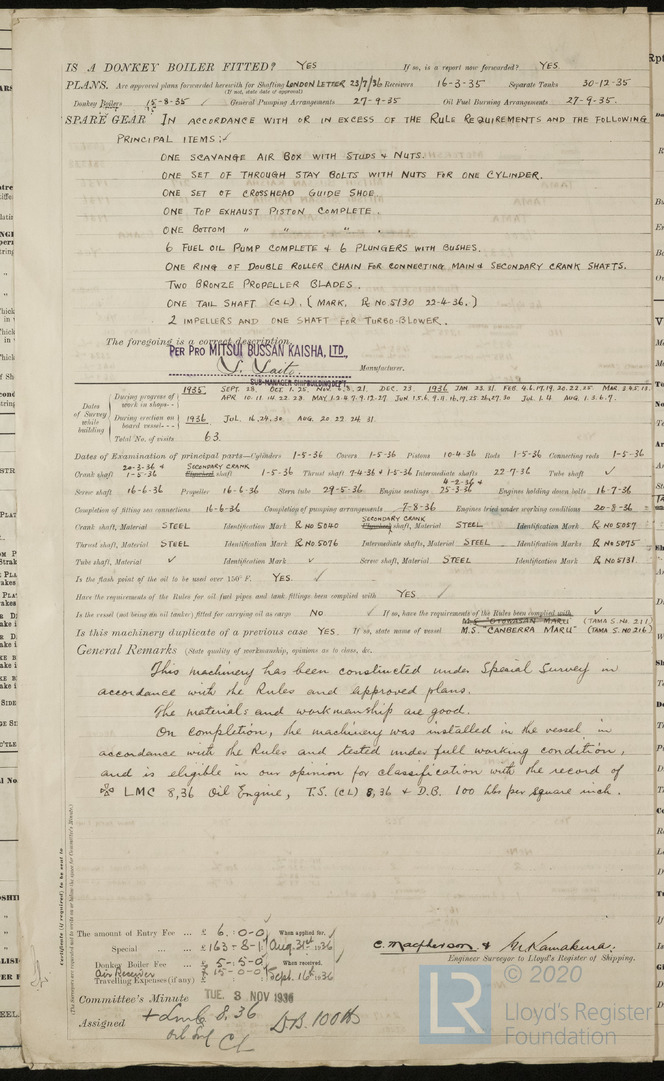 IS A DONKEY BOILER FITTED? YES If so, is a report now forwarded? YES.
PLANS. Are approved plans forwarded herewith for Shafting LONDON LETTER 23/7/36 Receivers 16-3-35 Separate Tanks 30-12-35
(If not, state date of approval)
Donkey Boilers 15-8-35 ✓ General Pumping Arrangements 27-9-35 Oil Fuel Burning Arrangements 27-9-35.
SPARE GEAR IN ACCORDANCE WITH OR IN EXCESS OF THE RULE REQUIREMENTS AND THE FOLLOWING
PRINCIPAL ITEMS:✓
ONE SCAVANGE AIR BOX WITH STUDS & NUTS.
ONE SET OF THROUGH STAY BOLTS WITH NUTS FOR ONE CYLINDER.
ONE SET OF CROSSHEAD GUIDE SHOE.
ONE TOP EXHAUST PISTON COMPLETE.
ONE BOTTOM " " " .
6 FUEL OIL PUMP COMPLETE & 6 PLUNGERS WITH BUSHES.
ONE RING OF DOUBLE ROLLER CHAIN FOR CONNECTING MAIN & SECONDARY CRANK SHAFTS.
TWO BRONZE PROPELLER BLADES.
ONE TAIL SHAFT (CL). (MARK. R NO.5130 22-4-36.)
2 IMPELLERS AND ONE SHAFT FOR TURBO-BLOWER.
The foregoing is a correct description,
PER PRO MITSUI BUSSAN KAISHA, LTD.,
Manufacturer.
SUB-MANAGER SHIPBUILDING DEPT.
Dates of Survey while building
During progress of work in shops - - 1935 SEPT. 28. OCT. 1, 25. NOV. 1, 8, 21. DEC. 23. 1936 JAN. 23. 31. FEB. 4. 6. 17. 19. 20. 22. 25. MAR. 3. 4. 5. 13.
APR. 10. 11. 14. 22. 23. MAY. 1. 2. 4. 7. 9. 12. 27. JUN. 1. 5. 6. 9. 11. 16. 19. 25. 26. 27. 30 JUL. 1. 4 AUG. 1. 3. 6. 7.
During erection on board vessel - - - 1936 JUL. 16. 24. 30 AUG. 20. 22. 24. 31.
Total No. of visits 63.
Dates of Examination of principal parts—Cylinders 1-5-36 Covers 1-5-36 Pistons 10-4-36 Rods 1-5-36 Connecting rods 1-5-36
Crank shaft 20-3-36 & 1-5-36 SECONDARY CRANK Flywheel shaft 1-5-36 Thrust shaft 7-4-36 & 1-5-36 Intermediate shafts 22-7-36 Tube shaft ✓
Screw shaft 16-6-36 Propeller 16-6-36 Stern tube 29-5-36 Engine seatings 4-2-36 & 25-3-36 Engines holding down bolts 16-7-36
Completion of fitting sea connections 16-6-36 Completion of pumping arrangements 7-8-36 Engines tried under working conditions 20-8-36
Crank shaft, Material STEEL Identification Mark R NO 5040 SECONDARY CRANK Flywheel shaft, Material STEEL Identification Mark R NO 5057
Thrust shaft, Material STEEL Identification Mark R NO.5076 Intermediate shafts, Material STEEL Identification Marks R NO 5075
Tube shaft, Material ✓ Identification Mark ✓ Screw shaft, Material STEEL Identification Mark R NO 5131.
Is the flash point of the oil to be used over 150° F. YES. ✓
Have the requirements of the Rules for oil fuel pipes and tank fittings been complied with YES ✓
Is the vessel (not being an oil tanker) fitted for carrying oil as cargo NO ✓ If so, have the requirements of the Rules been complied with ✓
M.S. "OTOWASAN MARU" (TAMA S. NO. 211)
Is this machinery duplicate of a previous case YES. If so, state name of vessel M.S. "CANBERRA MARU" (TAMA S. NO 216)
General Remarks (State quality of workmanship, opinions as to class, &c.
This machinery has been constructed under Special Survey in
accordance with the Rules and approved plans.
The materials and workmanship are good.
On completion, the machinery was installed in the vessel in
accordance with the Rules and tested under full working condition,
and is eligible in our opinion for classification with the record of
✠ LMC 8,36 Oil Engine, T.S. (CL) 8,36 & D.B. 100 lbs per square inch.
The amount of Entry Fee ... £ 6 : 0 - 0 When applied for,
Special ... £ 163 - 8 - 1 Aug. 31st 1936
Donkey Boiler Fee ... £ 5 - 5 - 0 When received,
Air Receiver £ 15 - 0 - 0 Sept. 16th 1936
Travelling Expenses (if any) £
C. Macpherson & M. Kamakura.
Engineer Surveyor to Lloyd's Register of Shipping.
Committee's Minute TUE. 3 NOV 1936
Assigned + Lmc 8.36 D.B. 100 lb
Oil Eng CL
© 2020
LR Lloyd's Register
Foundation